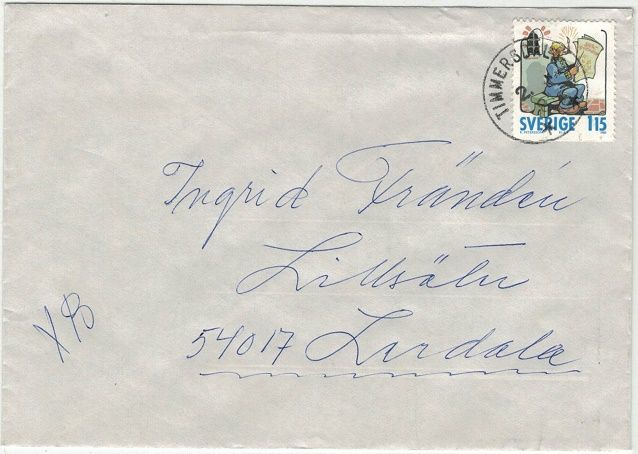 TIMMERSDALA
SVERIGE 115
Ingrid Frändén
Lillsäter
54017 Lerdala
XB